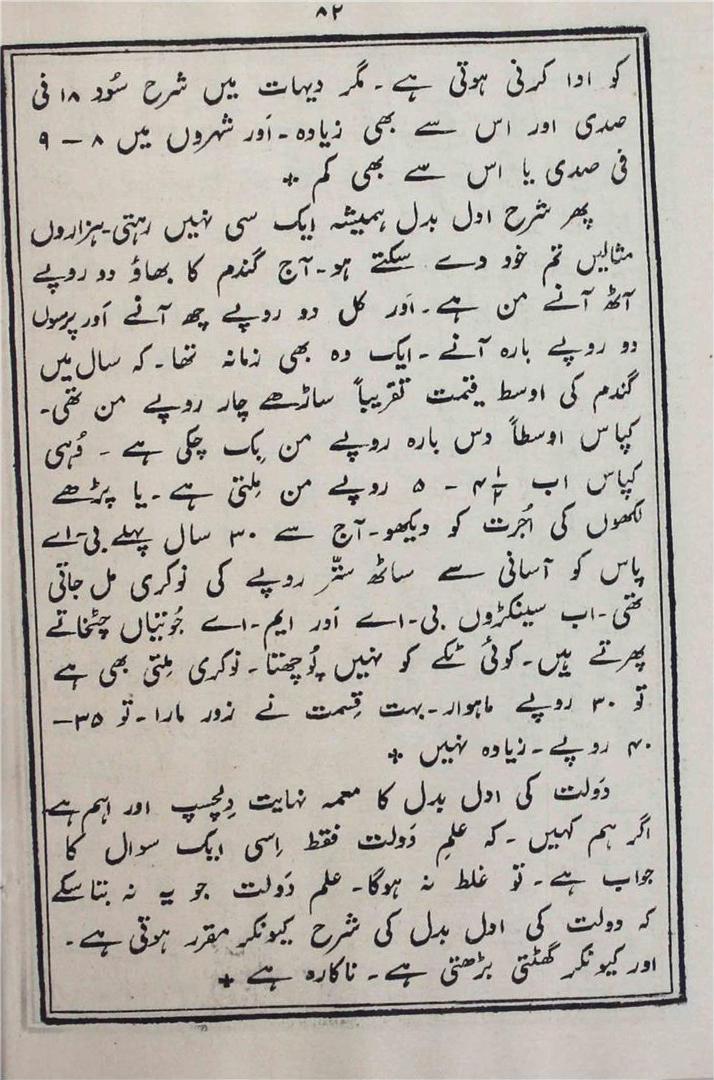 ۸۲
کو ادا کرنی ہوتی ہے۔ مگر دیہات میں شرح سُود ۱۸ فی
صدی اور اس سے بھی زیادہ۔ اَور شہروں میں ۸ – ۹
فی صدی یا اس سے بھی کم ٭
پھر شرح ادل بدل ہمیشہ ایک سی نہیں رہتی۔ ہزاروں
مثالیں تم خود دے سکتے ہو۔ آج گندم کا بھاؤ دو روپے
آٹھ آنے من ہے۔ اَور کل دو روپے چھ آنے اَور پرسوں
دو روپے بارہ آنے۔ ایک وہ بھی زمانہ تھا۔ کہ سال میں
گندم کی اوسط قیمت تقریباً ساڑھے چار روپے من تھی۔
کپاس اوسطاً دس بارہ روپے من بِک چکی ہے۔ وُہی
کپاس اب ۴½ – ۵ روپے من مِلتی ہے۔ یا پڑھے
لکھوں کی اُجرت کو دیکھو۔ آج سے ۳۰ سال پہلے بی۔اے
پاس کو آسانی سے ساٹھ ستّر روپے کی نوکری مل جاتی
تھی۔ اب سینکڑوں بی۔اے اَور ایم۔اے جُوتیاں چٹخاتے
پھرتے ہیں۔ کوئی ٹکے کو نہیں پُوچھتا۔ نوکری مِلتی بھی ہے
تو ۳۰ روپے ماہوار۔ بہت قِسمت نے زور مارا۔ تو ۳۵–
۴۰ روپے۔ زیادہ نہیں ٭
دَولت کی ادل بدل کا معمہ نہایت دِلچسپ اور اہم ہے
اگر ہم کہیں۔ کہ علمِ دَولت فقط اِسی ایک سوال کا
جواب ہے۔ تو غلط نہ ہوگا۔ علم دَولت جو یہ نہ بتا سکے
کہ دولت کی ادل بدل کی شرح کیونکر مقرر ہوتی ہے۔
اور کیونکر گھٹتی بڑھتی ہے۔ ناکارہ ہے ٭